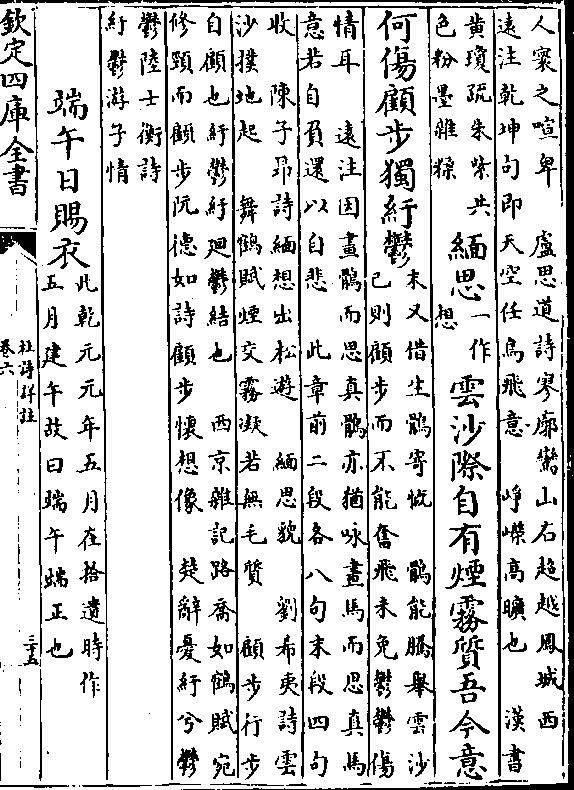 人寰之喧卑　盧思道詩寥廓鸞山右超越鳳城西
遠注乾坤句即天空任鳥飛意　崢嶸高曠也　漢書
黄瓊疏朱紫共
色粉墨雜糅
緬思
一作
想
雲沙際自有煙霧質吾今意
何傷顧步獨紆鬱
末又借生鶻寄慨　鶻能騰舉雲沙
己則顧步而不能奮飛未免鬱鬱傷
情耳　遠注因畫鶻而思真鶻亦猶咏畫馬而思真馬
意若自負還以自悲　此章前二段各八句末段四句
收　陳子昂詩緬想出松遊　緬思貌　劉希夷詩雲
沙撲地起　舞鶴賦煙交霧凝若無毛質　顧步行步
自顧也紆鬱紆廻鬱結也　西京雜記路喬如鶴賦宛
修頸而顧步阮德如詩顧步懷想像　楚辭憂紆兮鬱
鬱陸士衡詩
紆鬱游子情
端午日賜衣
此乾元元年五月在拾遺時作
五月建午故曰端午端正也
欽定四庫全書
杜詩詳註
卷六
三十五